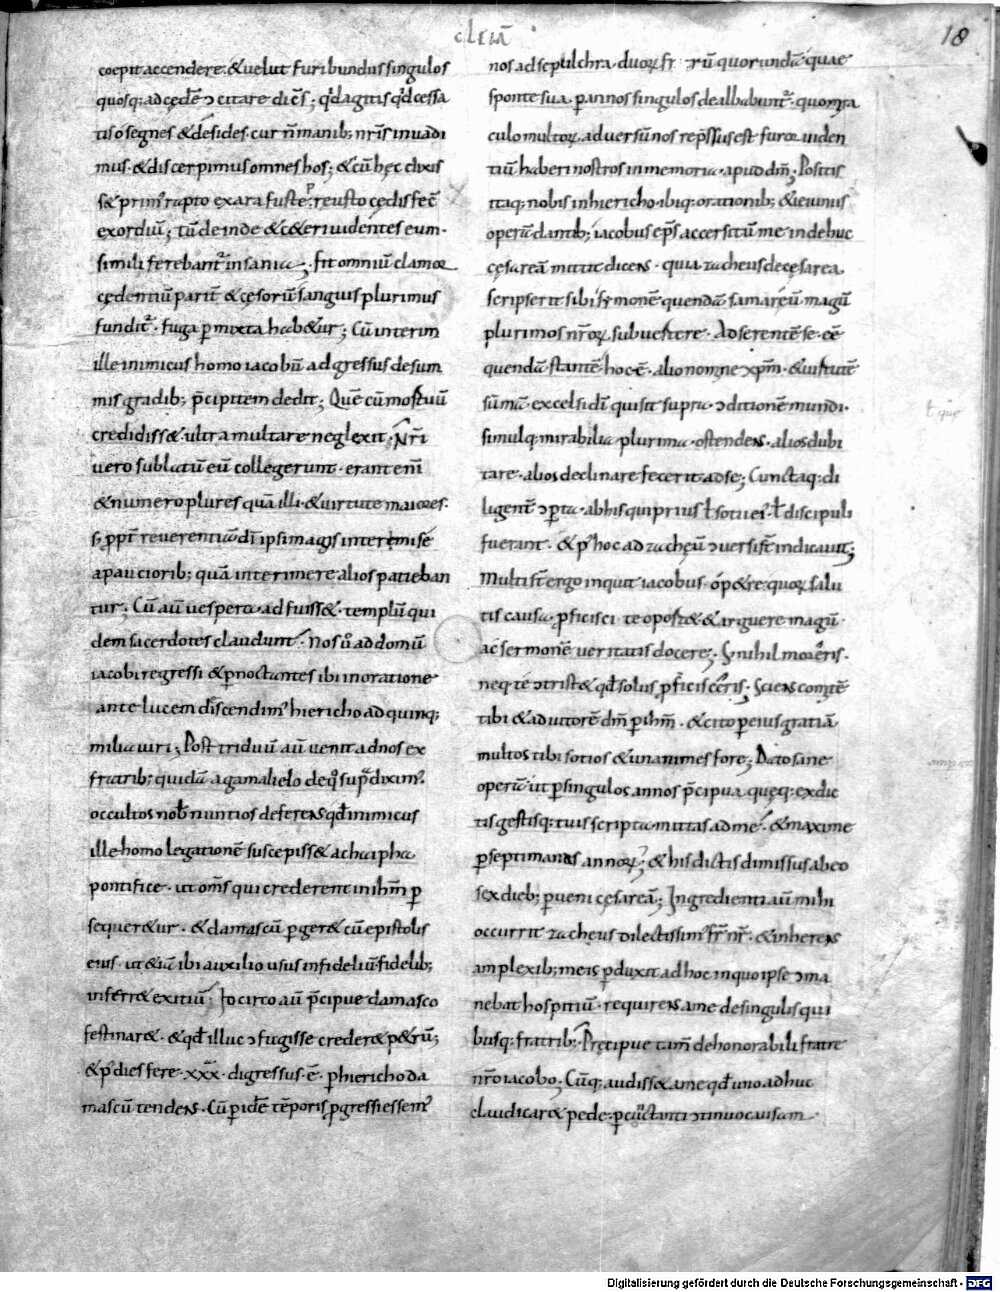 clem̄
18
coepit accendere. & uelut furibundus singulos
quosq; ad cędē ɔcitare dicēs; qd̄ agitis qd̄ cessa
tis o segnes & desides. cur n̄ manib; nr̄is inuadi
mus. & discerpimus omnes hos; & cū hęc dixis
s& prim' rapto ex ara fuste. reusto cędis fec̄
exordiū; tū deinde & c&eri uidentes eum.
simili ferebant᷑ insania; fit omniū clamor
cędentiū parit᷑ & cęsorū sanguis plurimus
fundit᷑. fuga p̄mixta hab&ur; Cū interim
ille inimicus homo iacobū adgressus de sum
mis gradib; p̄cipitem dedit; Quē cū mortuū
credidiss& ultra multare neglexit; Nr̄i
uero sublatū eū collegerunt. erant enī
& numero plures quā illi. & uirtute maiores.
s; ꝓpt᷑ reuerentiā dī ipsi magis interemi se
a paucorib; quā interimere alios patieban
tur; Cū aū uespera adfuiss& templū qui
dem sacerdotes claudunt; Nos ū ad domū
iacobi regressi & ꝑnoctantes ibi in oratione
ante lucem discendim' hiericho ad quinq;
milia uiri; Post triduū aū uenit ad nos ex
fratrib; quidā a gamalielo de q° sup̄ dixim'.
occultos nob̄ nuntios deferens qd̄ inimicus
ille homo legationē suscepiss& a chaipha
pontifice. ut om̄s qui crederent in ih̄m ꝑ
sequer&ur. & damascū ꝑger& cū epistolis
eius. ut &iā ibi auxilio usus infideliū fidelib;
inferr& exitiū; Idcirco aū p̄cipue damasco
festinar&. & qd̄ illuc ɔfugisse creder& p&rū;
& p' dies fere. xxx. digressus. ē. ꝑ hiericho da
mascū tendens. Cū ꝑ idē tēporis ꝓgressi essem'
nos ad sepulchra duoꝝ fr̄rū quorundā quae
sponte sua ꝑ annos singulos dealbabunt᷑. quo mira
culo multoꝝ aduersū nos rep̄ssus est furor uiden
tiū haberi nostros in memoria apud dm̄; Positis
itaq; nobis in hiericho. ibiq; orationib; & ieiuniis
operā dantib; iacobus ep̄s accersitū me inde huc
cęsareā mittit dicens. quia zacheus de cęsarea
scripserit sibi symonē quendā samareū magū
plurimos nr̄oꝝ subuertere. Adserentē se. eē
quendā stantē. hoc ē. alio nomine xp̄m. & uirtutē
sūmā excelsi dī qui sit supra ɔditionē mundi.
simulq; mirabilia plurima ostendens. alios dubi
tare. alios declinare fecerit ad se; Cunctaq; di
ligent᷑ ɔperta. ab his qui prius ł socii ei'. ł discipuli
fuerant. & p' hoc ad zacheū ɔuersi st̄ indicauit;
Multi st̄ ergo inquit iacobus. o p&re quoꝝ salu
tis causa ꝓficisci te oport& & arguere magū.
ac sermonē ueritatis docere; s; nihil moreris.
neq; te ɔtrist& qd̄ solus ꝓficisceris; Sciens comitē
tibi & adiutorē dm̄ ꝑ ih̄m. & cito ꝑ eius gratiā
multos tibi sotios & unanimes fore; Dato sane
operā ut ꝑ singulos annos p̄cipua quęq; ex dic
tis gestisq; tuis scripta mittas ad me. & maxime
ꝑ septimanas annoꝝ; & his dictis dimissus ab eo
sex dieb; ꝑueni cęsareā; Ingredienti aū mihi
occurrit zacheus dilectissim' fr̄ nr̄. & inherens
amplexib; meis ꝑduxit ad hoc in quo ipse ɔma
nebat hospitiū. requirens a me de singulis qui
busq; fratrib; Pręcipue tam̄ de honorabili fratre
nr̄o iacobo; Cūq; audiss& a me qd̄ uno adhuc
claudicar& pede. ꝑcunctanti ɔtinuo causam